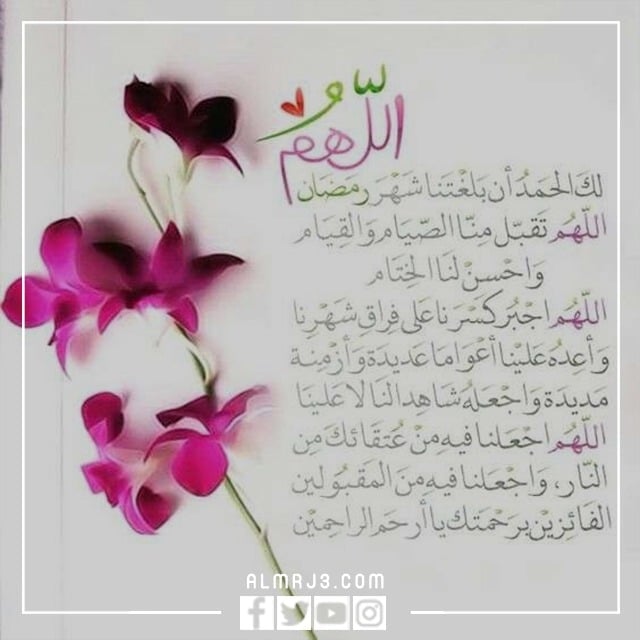 اللّهُمَّ
لكَ الحَمدُ أن بَلغْتَنا شَهْرَ رمَضَان
اللّهُم تَقبّل مِنّا الصّيَام وَالقِيَام
وَاحْسنْ لنَا الخِتَام
اللّهُم اجْبُر كسَرنا عَلى فِراقِ شَهْرِنا
وَأعِدهُ عَليْنا أعْوَاما عَديدَة وَأزْمِنة
مَديدَة وَاجْعَلهُ شاهِدا لنا لا عَلينَا
اللّهُم اجعَلنا فيهِ منْ عُتقَائكَ مِن
النَّار، وَاجْعَلنا فيهِ منَ المَقبُولين
الفَائزِيْن برَحْمَتك يا أرحَم الراحِمِيْن
ALMRJ3.COM